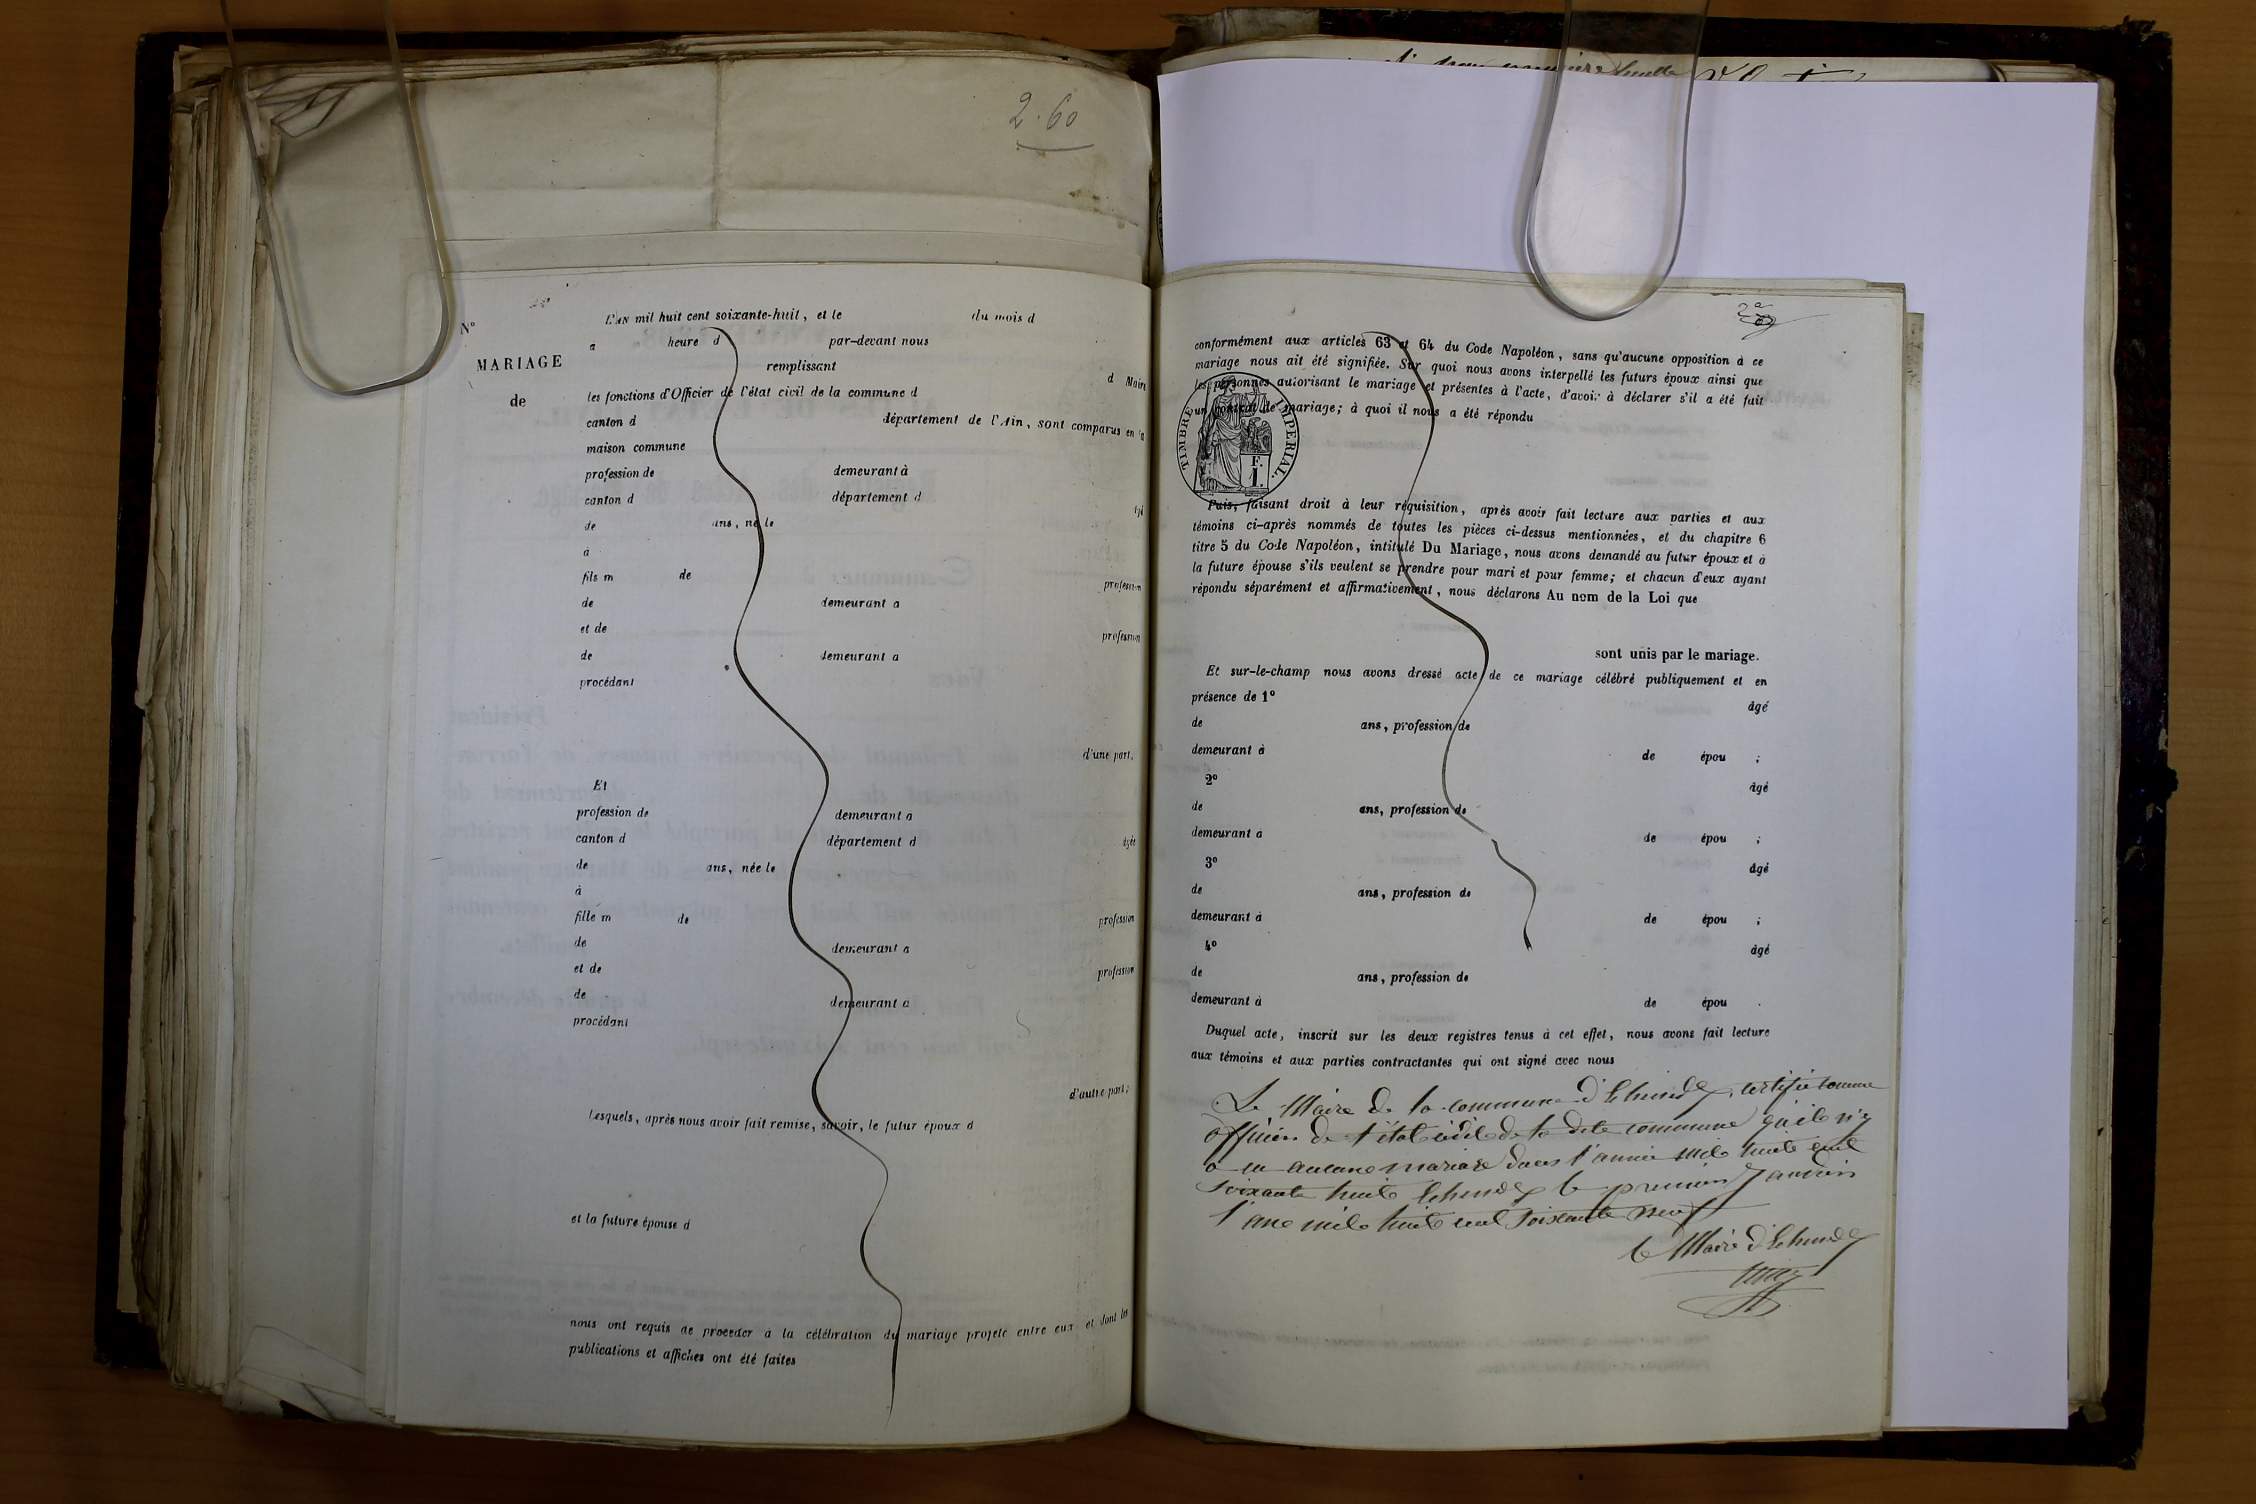 2.60
N°
MARIAGE
de
L'AN mil huit cent soixante-huit, et le du mois d
a heure d par-devant nous
remplissant d Maire
les fonctions d'Officier de l'état civil de la commune d
canton d département de l'Ain, sont comparus en la
maison commune
profession de demeurant à
canton d département d âgé
de ans, né le
à
fils m de profession
de demeurant a
et de profession
de demeurant a
procédant
d'une part,
Et
profession de demeurant à
canton d département d âgée
de ans, née le
à
fille m de profession
de demeurant a
et de profession
de demeurant a
procédant
d'autre part;
Lesquels, après nous avoir fait remise, savoir, le futur époux d
et la future épouse d
nous ont requis de procéder à la célébration du mariage projeté entre eux et dont les
publications et affiches ont été faites
conformément aux articles 63 et 64 du Code Napoléon, sans qu'aucune opposition à ce
mariage nous ait été signifiée. Sur quoi nous avons interpellé les futurs époux ainsi que
les personnes autorisant le mariage et présentes à l'acte, d'avoir à déclarer s'il a été fait
un contrat de mariage; à quoi il nous a été répondu
TIMBRE IMPERIAL.
F.
1.
Puis, faisant droit à leur réquisition, après avoir fait lecture aux parties et aux
témoins ci-après nommés de toutes les pièces ci-dessus mentionnées, et du chapitre 6
titre 5 du Code Napoléon, intitulé Du Mariage, nous avons demandé au futur époux et à
la future épouse s'ils veulent se prendre pour mari et pour femme; et chacun d'eux ayant
répondu séparément et affirmativement, nous déclarons Au nom de la Loi que
sont unis par le mariage.
Et sur-le-champ nous avons dressé acte de ce mariage célébré publiquement et en
présence de 1° âgé
de ans, profession de
demeurant à de épou ;
2° âgé
de ans, profession de
demeurant a de épou ;
3° âgé
de ans, profession de
demeurant à de épou ;
4° âgé
de ans, profession de
demeurant à de épou .
Duquel acte, inscrit sur les deux registres tenus à cet effet, nous avons fait lecture
aux témoins et aux parties contractantes qui ont signé avec nous
Le Maire de la commune d' certifie comme
officier de l'état civil de la dite commune qu'il n'y
a eu aucune mariage dans l'année mil huit cent
soixante huit le premier Janvier
l'ane mil huit cent soixante neuf
le Maire d'